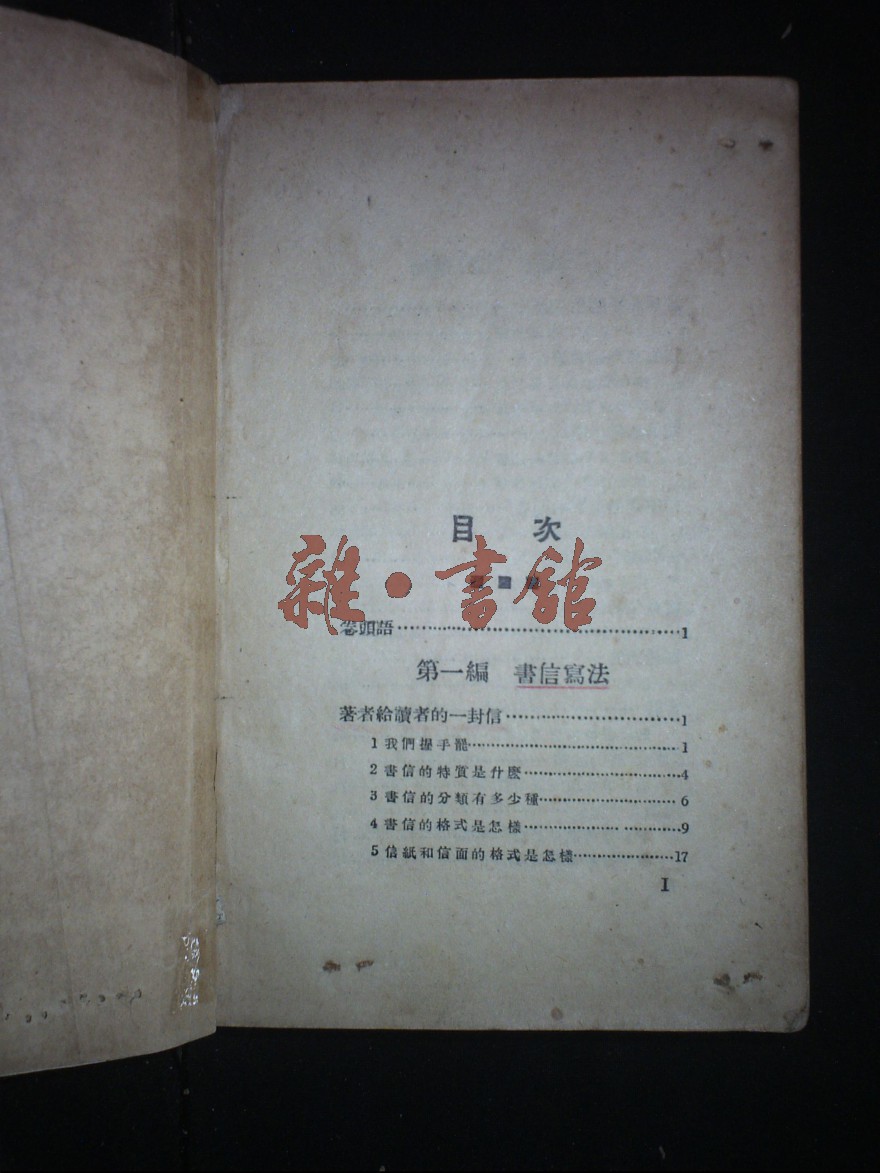 目 次
雜·書館
卷頭語 1
第一編 書信寫法
著者給讀者的一封信 1
1 我們握手罷 1
2 書信的特質是什麼 4
3 書信的分類有多少種 6
4 書信的格式是怎樣 9
5 信紙和信面的格式是怎樣 17
I